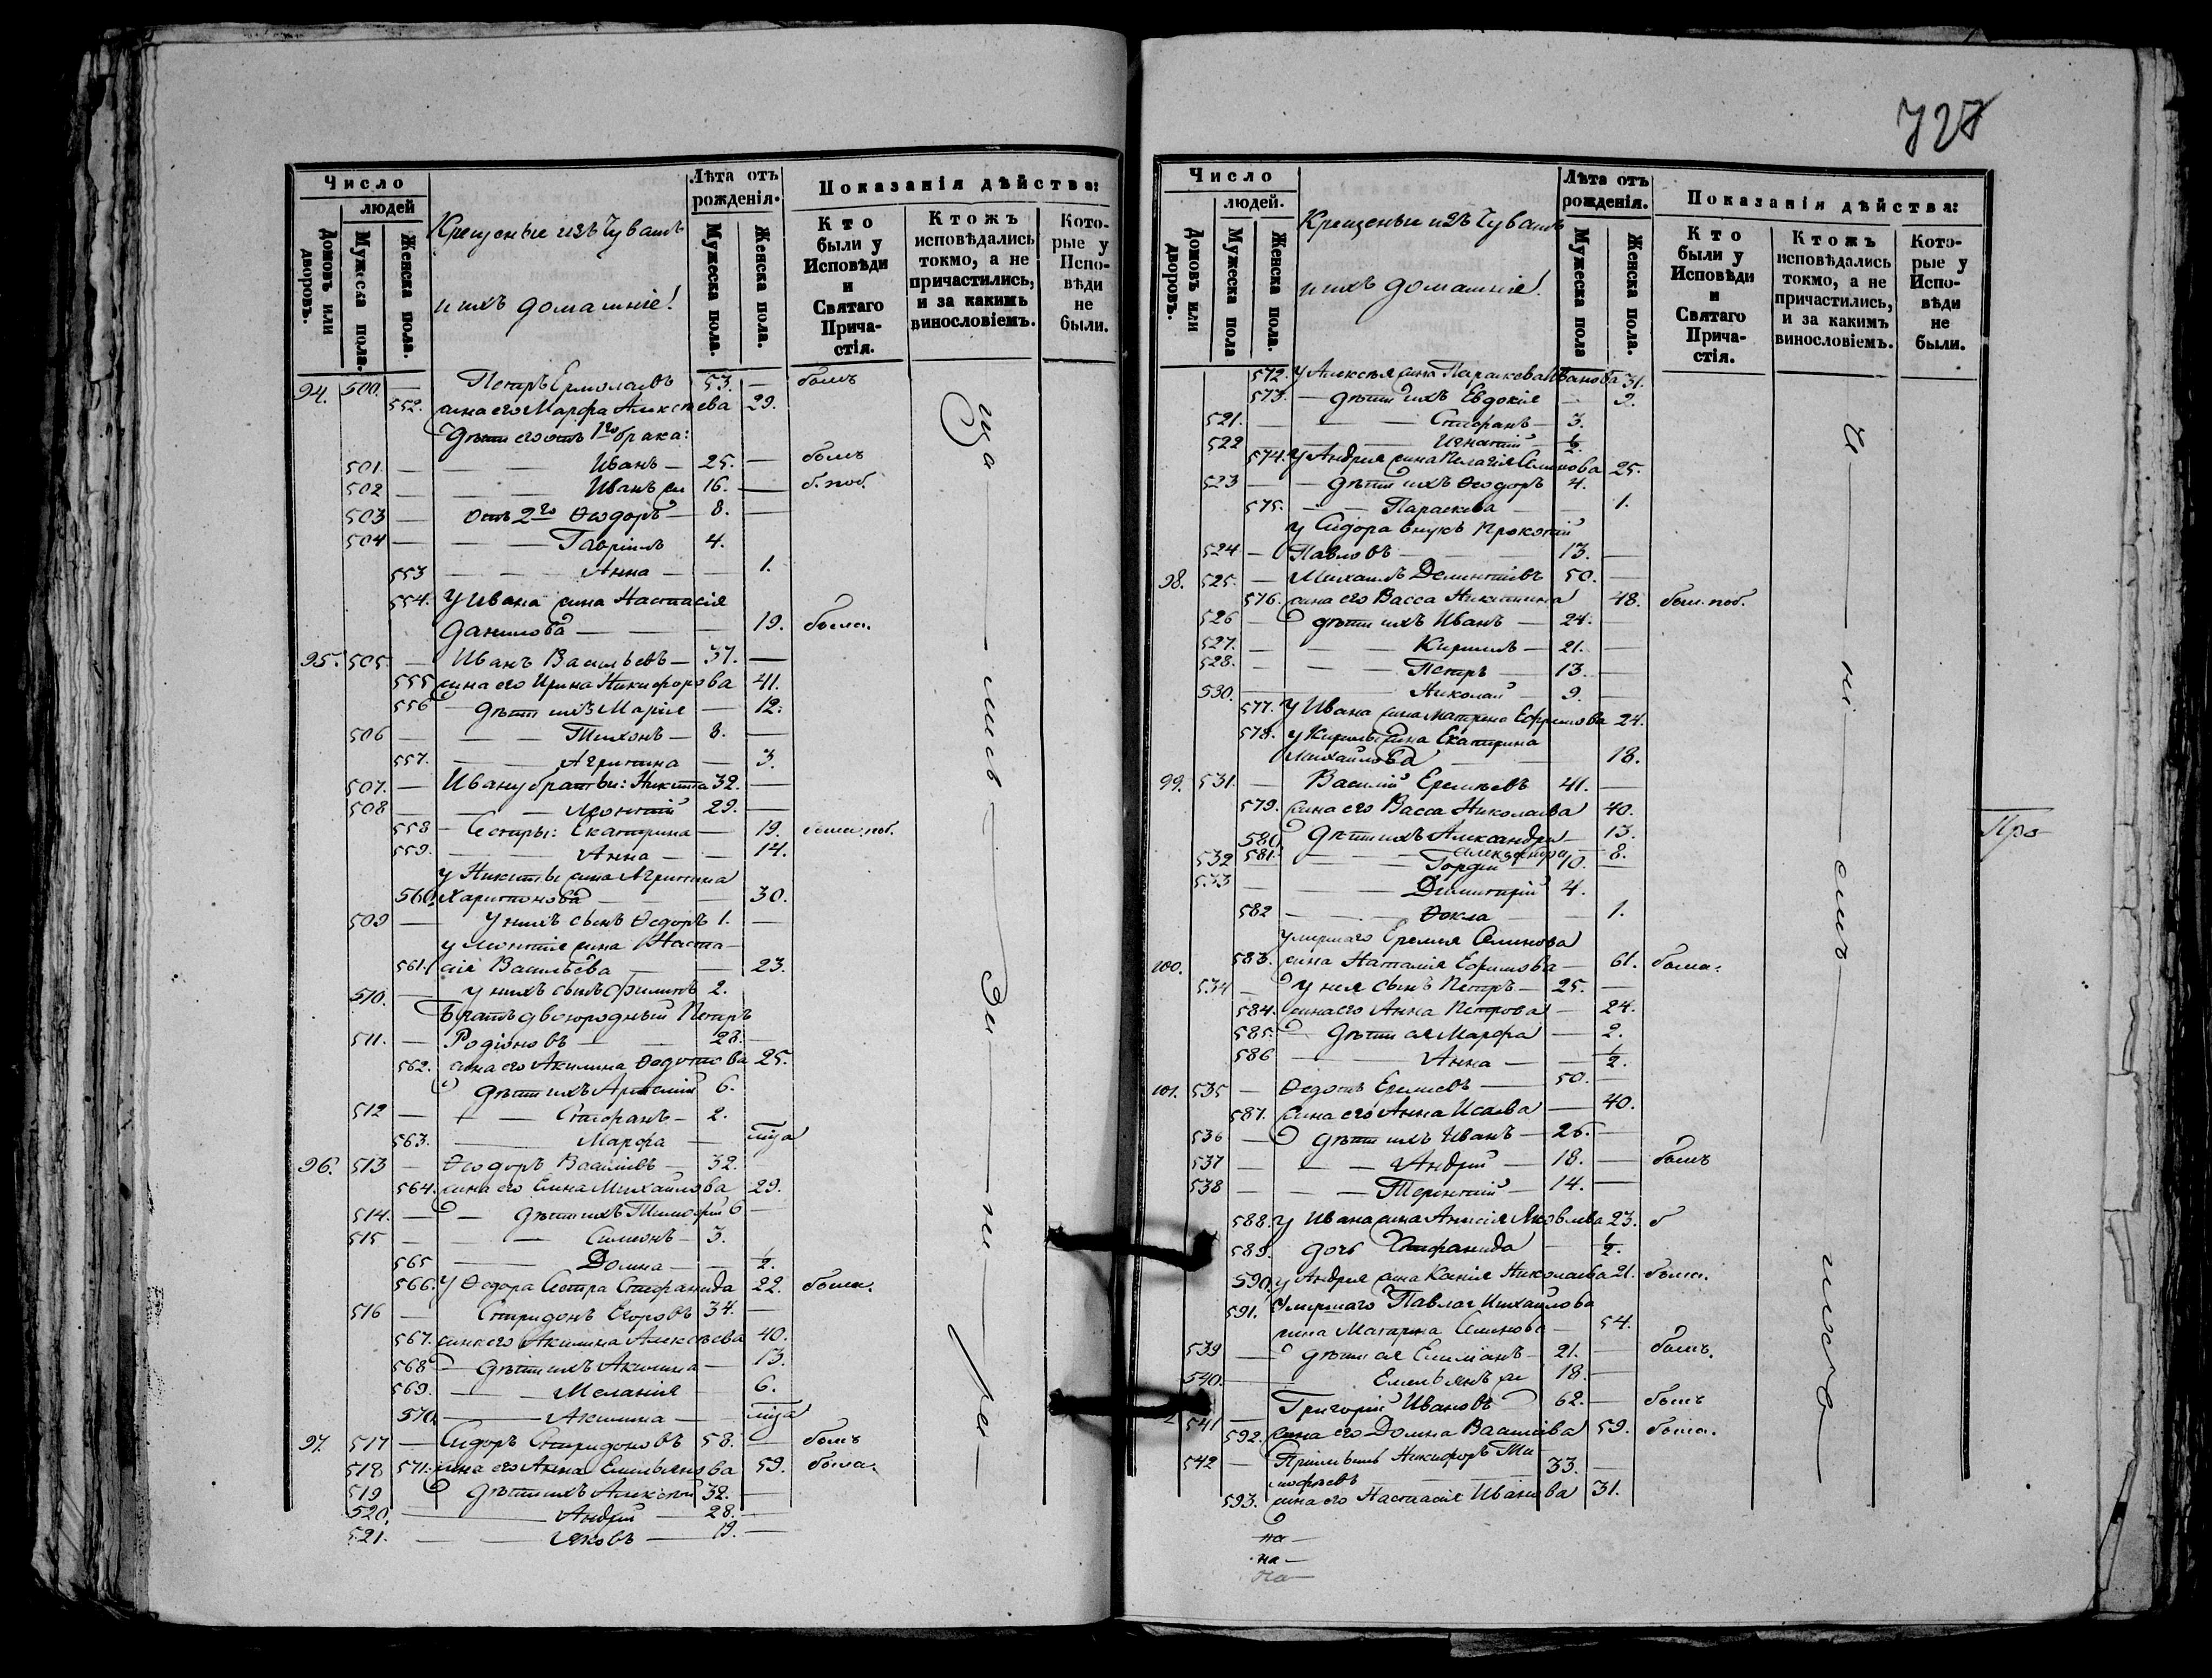 Число
людей
Домовъ или дворовъ.
Мужеска пола.
Женска пола.
Крещеные изъ Чувашъ
и ихъ домашніе!
Лѣта отъ рожденія.
Мужеска пола.
Женска пола.
Показанія дѣйства:
Кто были у Исповѣди и Святаго Причастія.
Ктожъ исповѣдались токмо, а не причастились, и за какимъ винословіемъ.
Которые у Исповѣди не были.
94. 500. — Петръ Ермолаевъ 53. — былъ
552. жена его Марфа Алексѣева 29.
Дѣти его отъ 1го брака:
501. — Иванъ — 25. — былъ
502 — Иванъ 16. — б. поб.
503 — Отъ 2го Ѳеодоръ — 8. —
504 — Гавріилъ 4.
553 — Анна — 1.
554. У Ивана жена Настасія
Данилова — 19. была.
95. 505. — Иванъ Васильевъ — 37. —
555 жена его Ирина Никифорова 41.
556 — дѣти ихъ Марія — 12.
506 — Тихонъ — 8. —
557. — Агрипина — 3.
507. — Ивану братьи: Никита 32. —
508 — Леонтій 29. —
558 — Сестры: Екатерина — 19. были поб.
559. — Анна — 14.
у Никиты жена Агрипина
560. Харитонова — 30.
509 — у нихъ сынъ Ѳедоръ 1. —
у Леонтія жена Наста-
561. сія Васильева — 23.
510. — у нихъ сынъ Филипъ 2.
Братъ двоюродный Петръ
511. — Родіоновъ — 28. —
562. жена его Акилина Ѳедотова 25.
дѣти ихъ Арсеній 6.
512 — Стефанъ — 2.
563. — Марфа —
96. 513 — Ѳеодоръ Василіевъ — 32.
564. жена его Елена Михайлова 29.
514. — дѣти ихъ Тимофей 6 —
515 — Симеонъ — 3.
565 — Домна — ½.
566. У Ѳедора Сестра Стефанида 22. была.
516 — Спиридонъ Егоровъ 34. —
567. жена его Акилина Алексѣева 40.
568 — дѣти ихъ Акилина — 13.
569. — Меланія — 6.
570. — Акилина —
97. 517 — Сидоръ Спиридоновъ 58. — былъ
518 571. жена его Анна Емельянова 59. была.
519 дѣти ихъ Алексѣй 32. —
520. — Андрей — 28. —
521. — Яковъ — 19. —
727
Число
людей.
Домовъ или дворовъ.
Мужеска пола
Женска пола.
Крещеные изъ Чувашъ
и ихъ домашніе!
Лѣта отъ рожденія.
Мужеска пола
Женска пола.
Показанія дѣйства:
Кто были у Исповѣди и Святаго Причастія.
Ктожъ исповѣдались токмо, а не причастились, и за какимъ винословіемъ.
Которые у Исповѣди не были.
572. у Алексѣя жена Параскева Иванова 31.
573. — дѣти ихъ Евдокія — 9.
521. — Стефанъ — 3.
522 — Игнатій ½.
574. у Андрея жена Пелагія Семенова 25.
523 — дѣти ихъ Ѳеодоръ 4.
575. — Параскева — 1.
у Сидора внукъ Прокопій
524 — Павловъ — 13. —
98. 525. — Михаилъ Дементіевъ 50. —
576. жена его Васса Никитина 48. были поб.
526 — дѣти ихъ Иванъ — 24. —
527. — Кирилъ — 21. —
528. — Петръ — 13. —
530. — Николай — 9. —
577. У Ивана жена Матрена Ефремова 24.
578. у Кирилы жена Екатерина
Михайлова — 18.
99. 531. — Василій Еремѣевъ 41. —
579. жена его Васса Николаева 40.
580. дѣти ихъ Александра — 13.
581. — Александра — 8.
532 — Гордѣй — 10. —
533 — Димитрій 4.
582 — Ѳекла — 1.
умершаго Еремея Семенова
100. 583. жена Наталія Ефимова — 61. была.
534 — у нея сынъ Петръ — 25. —
584. жена его Анна Петрова — 24.
585. дѣти ея Марфа — 2.
586 — Анна — ½.
101. 535 — Ѳедотъ Еремеевъ — 50. —
587. жена его Анна Исаева — 40.
536 — дѣти ихъ Иванъ — 26. —
537 — Андрей — 18. — былъ
538 — Терентій — 14. —
588. у Ивана жена Анисія Яковлева 23. б
589. дочь Стефанида — ½.
590. у Андрея жена Ксенія Николаева 21. была.
591. Умершаго Павла Михайлова
жена Матрена Семенова — 54.
539 — дѣти ея Емельянъ — 21. — былъ.
540. — Емельянъ 18. —
541 — Григорій Ивановъ 62. — былъ
592. жена его Домна Василіева 59. была.
542 — Пріемышъ Никифоръ Ти-
мофеевъ — 33. —
593. жена его Настасія Иванова 31.
на —
на —
на —
Про-